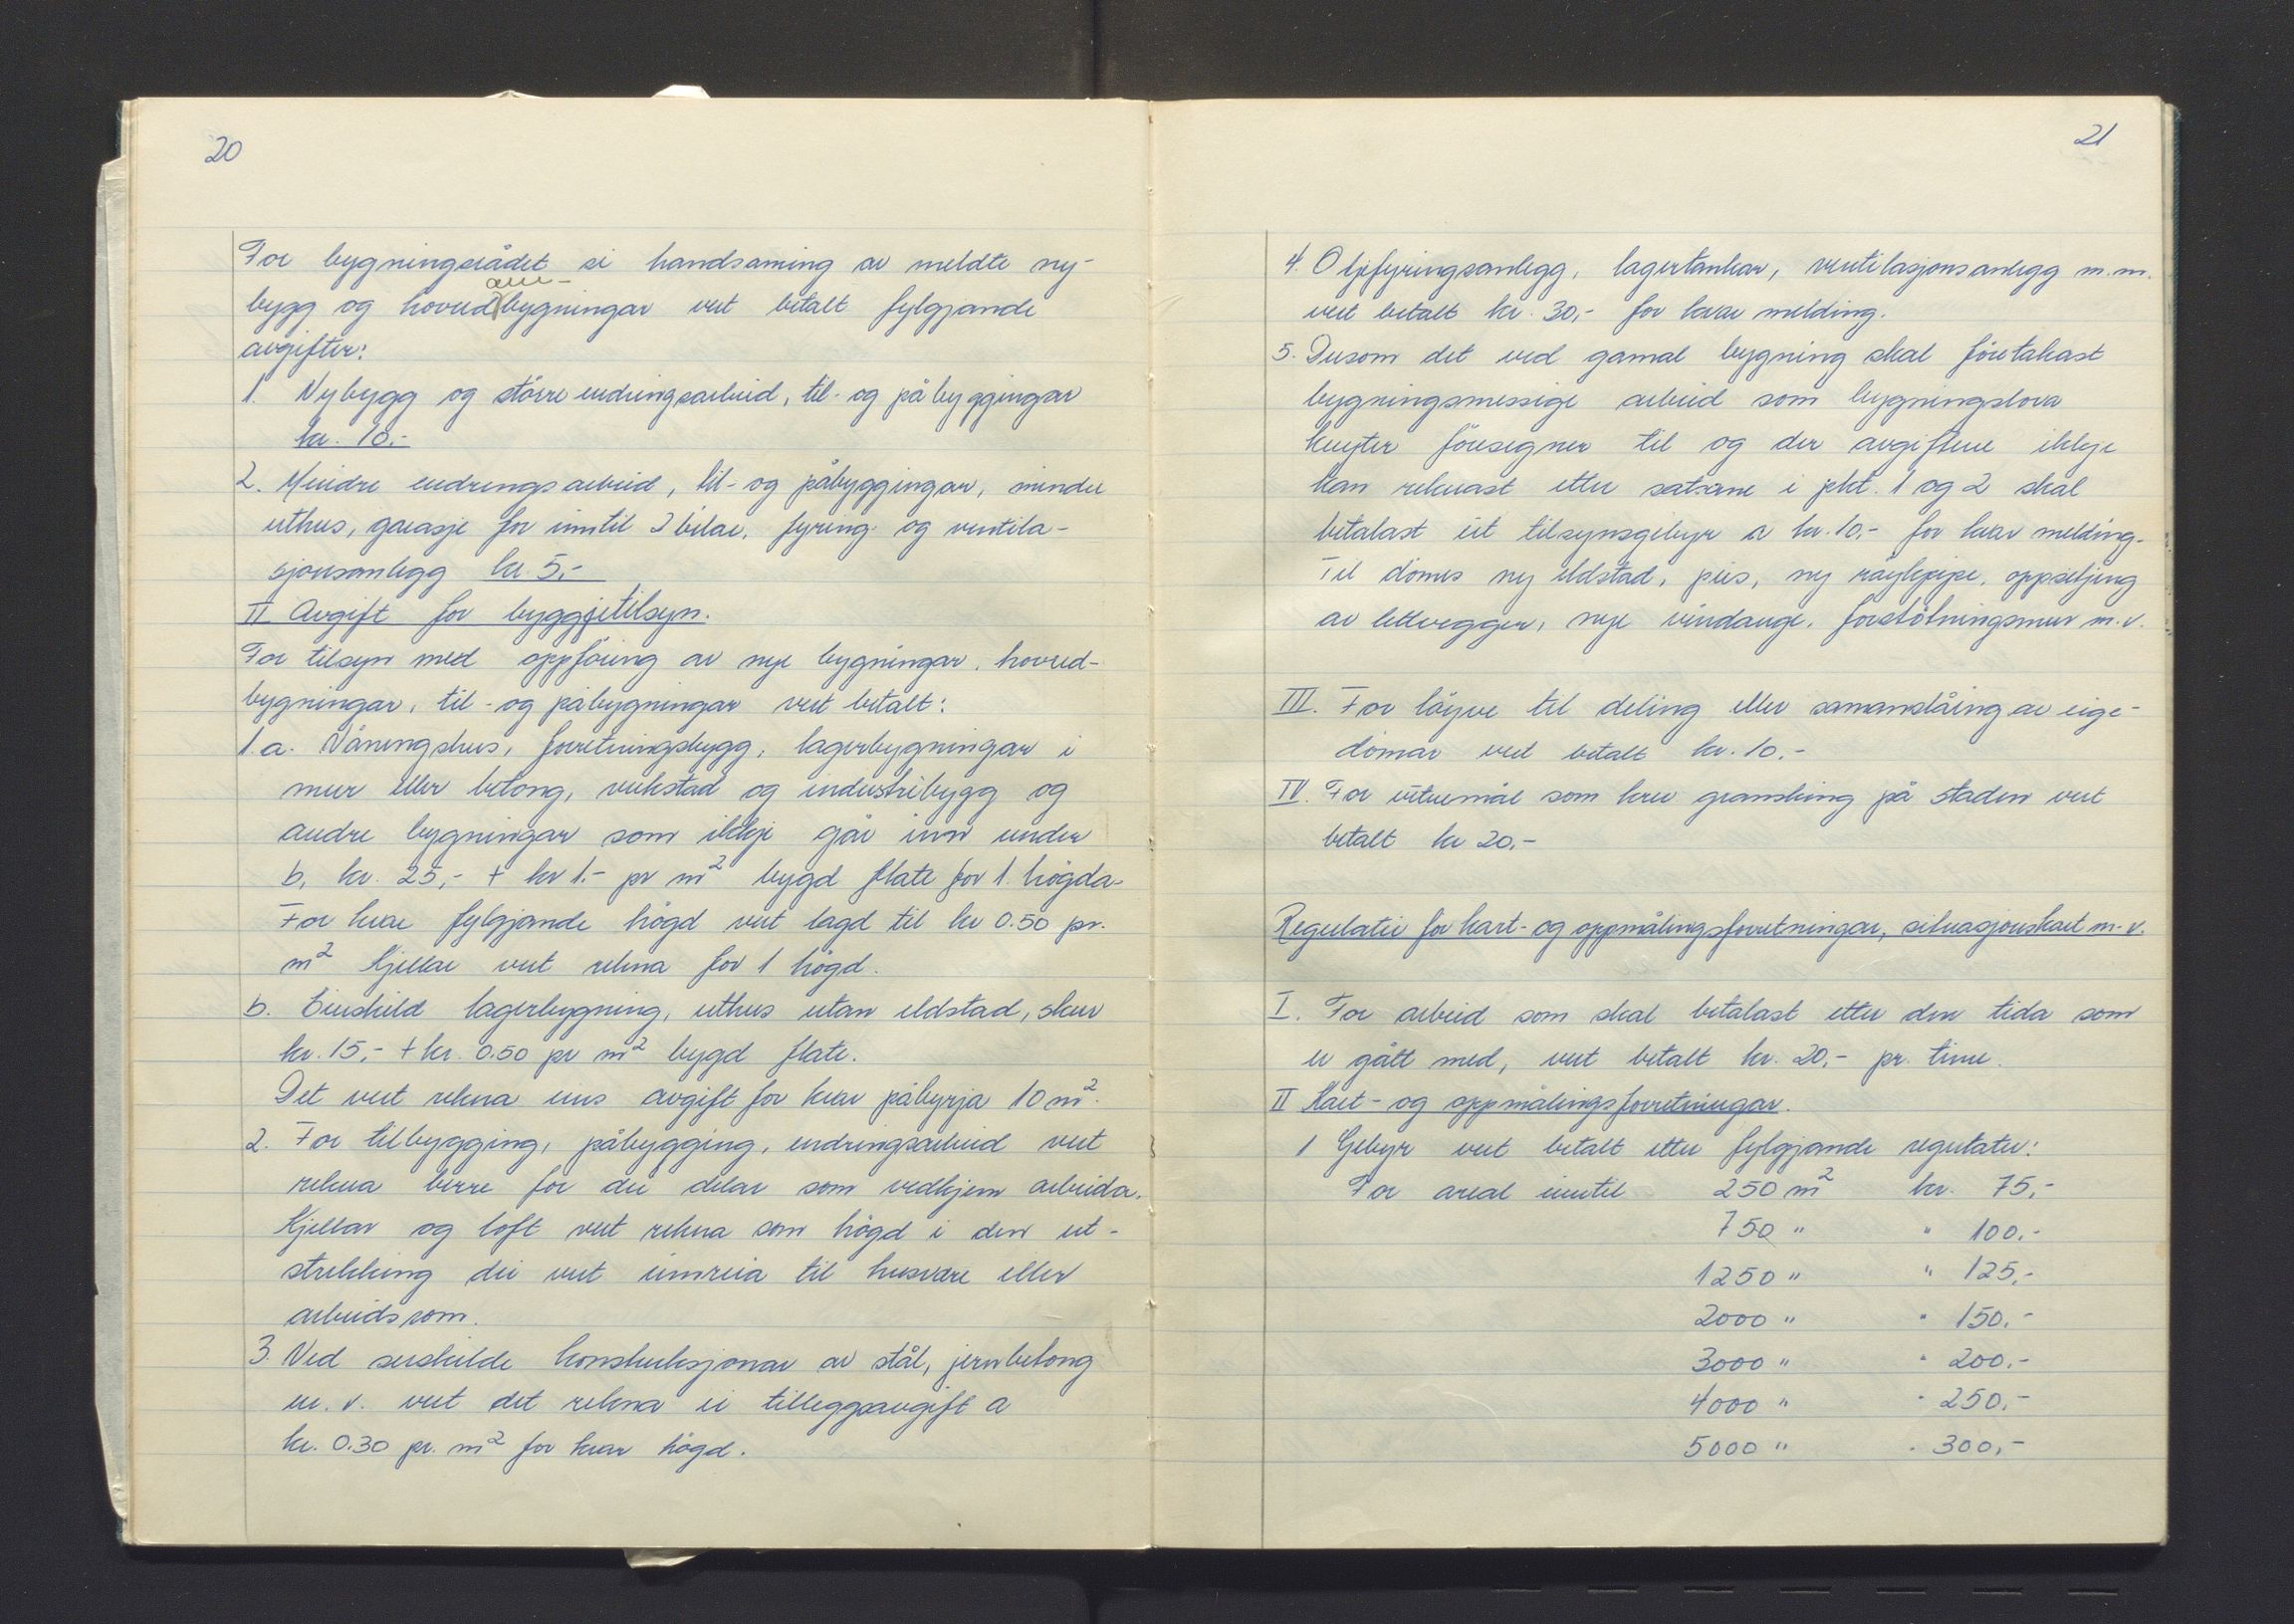 20
For bygningsrådet si handsaming av meldte ny-
bygg og hovud bygningar vert betalt fylgjande
avgifter:
1. Nybygg og större endringsarbeid, til- og påbyggingar
kr. 10.-
2. Mindre endringsarbeid, til- og påbyggingar, mindre
uthus, garasje for inntil 2 bilar, fyring- og ventila-
sjonsanlegg kr. 5,-
II Avgift for byggjetilsyn.
For tilsyn med oppföring av nye bygningar, hovud-
bygningar, til- og påbygningar vert betalt:
1.a. Våningshus, forretningsbygg, lagerbygningar i
mur eller betong, verkstad og industribygg og
andre bygningar som ikkje går inn under
b, kr. 25,- + kr 1.- pr m² bygd flate for 1. högda.
For kvar fylgjande högd vert lagd til kr 0.50 pr.
m² Kjellar vert rekna for 1 högd.
b. Einskild lagerbygning, uthus utan eldstad, skur
kr. 15,- + kr. 0.50 pr m² bygd flate.
Det vert rekna eins avgift for kvar påbyrja 10 m².
2. For tilbygging, påbygging, endringsarbeid vert
rekna berre for dei delar som vedkjem arbeida.
Kjellar og loft vert rekna som högd i den ut-
strekking dei vert innreia til husvære eller
arbeidsrom.
3. Ved serskilde konstruksjonar av stål, jernbetong
m. v. vert det rekna ei tilleggsavgift a
kr. 0.30 pr. m² for kvar högd.
21
4. Oljefyringsanlegg, lagertankar, ventilasjonsanlegg m.m.
vert betalt kr. 30,- for kvar melding.
5. Dersom det ved gamal bygning skal företakast
bygningsmessige arbeid som bygningslova
knyter föresegner til og der avgiftene ikkje
kan reknast etter satsane i pkt. 1 og 2 skal
betalast eit tilsynsgebyr a kr. 10.- for kvar melding.
Til dömes ny eldstad, peis, ny röykpipe, oppsetjing
av lettvegger, nye vindauge, forstötningsmur m.v.
III. For löyve til deling eller samanslåing av eige-
domar vert betalt kr. 10.-
IV. For utremål som krev gransking på staden vert
betalt kr 20.-
Regulativ for kart- og oppmålingsforretningar, situasjonskart m.v.
I. For arbeid som skal betalast etter den tida som
er gått med, vert betalt kr. 20,- pr. time.
II Kart- og oppmålingsforretningar.
1 Gebyr vert betalt etter fylgjande regulativ:
For areal inntil 250 m² kr. 75,-
750 " " 100.-
1250 " " 125,-
2000 " " 150.-
3000 " " 200.-
4000 " " 250.-
5000 " " 300,-